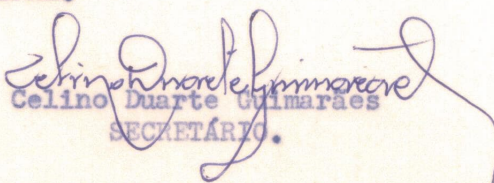 Celino Duarte Guimarães
Celino Duarte Guimarães
SECRETÁRIO.